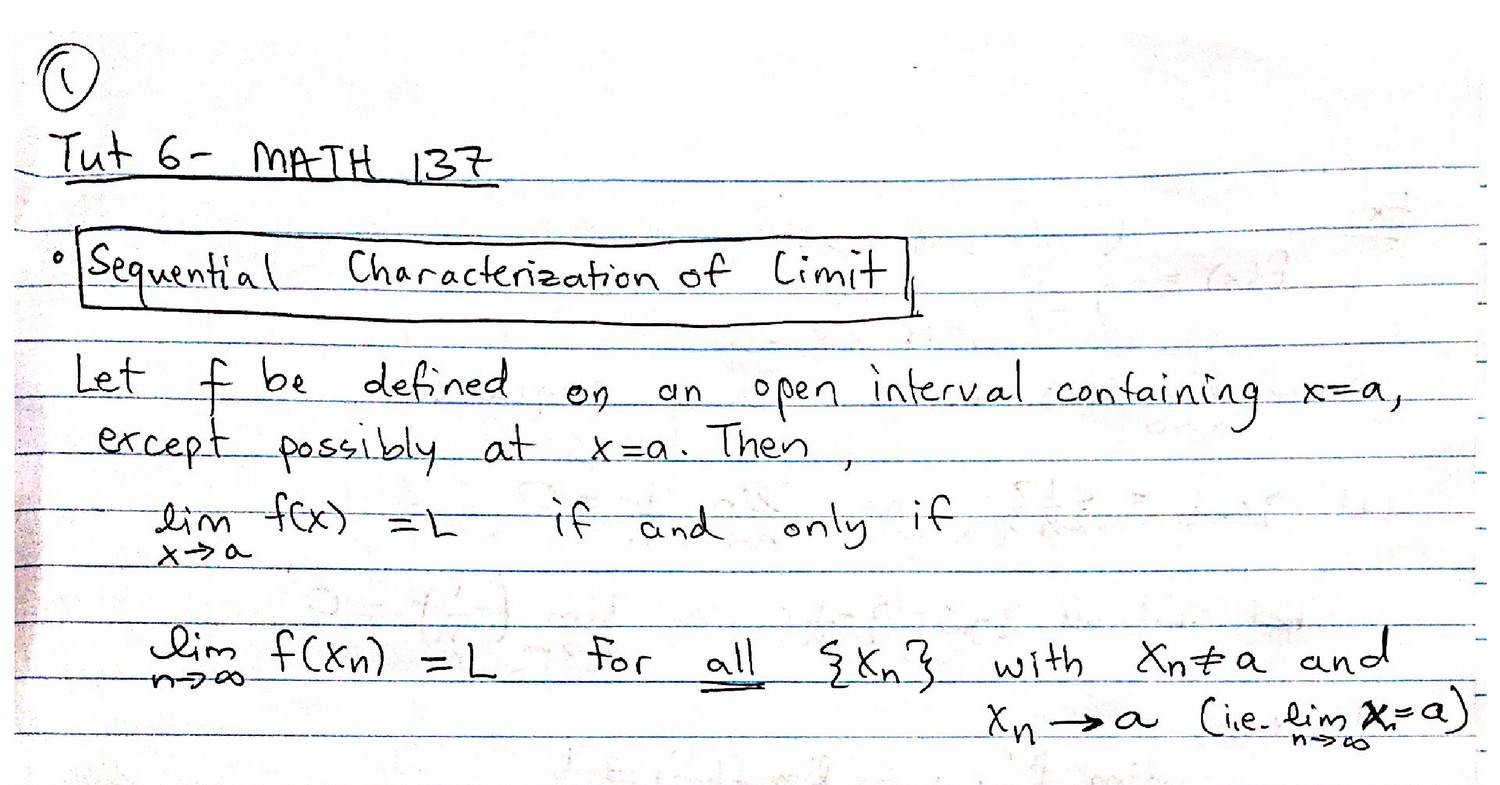 ①
Tut 6- MATH 137
• Sequential Characterization of Limit
Let f be defined on an open interval containing x=a,
except possibly at x=a. Then,
lim f(x) = L if and only if
x→a
lim f(xn) = L for all {xn} with xn≠a and
n→∞
xn → a (i.e. lim xn=a)
n→∞